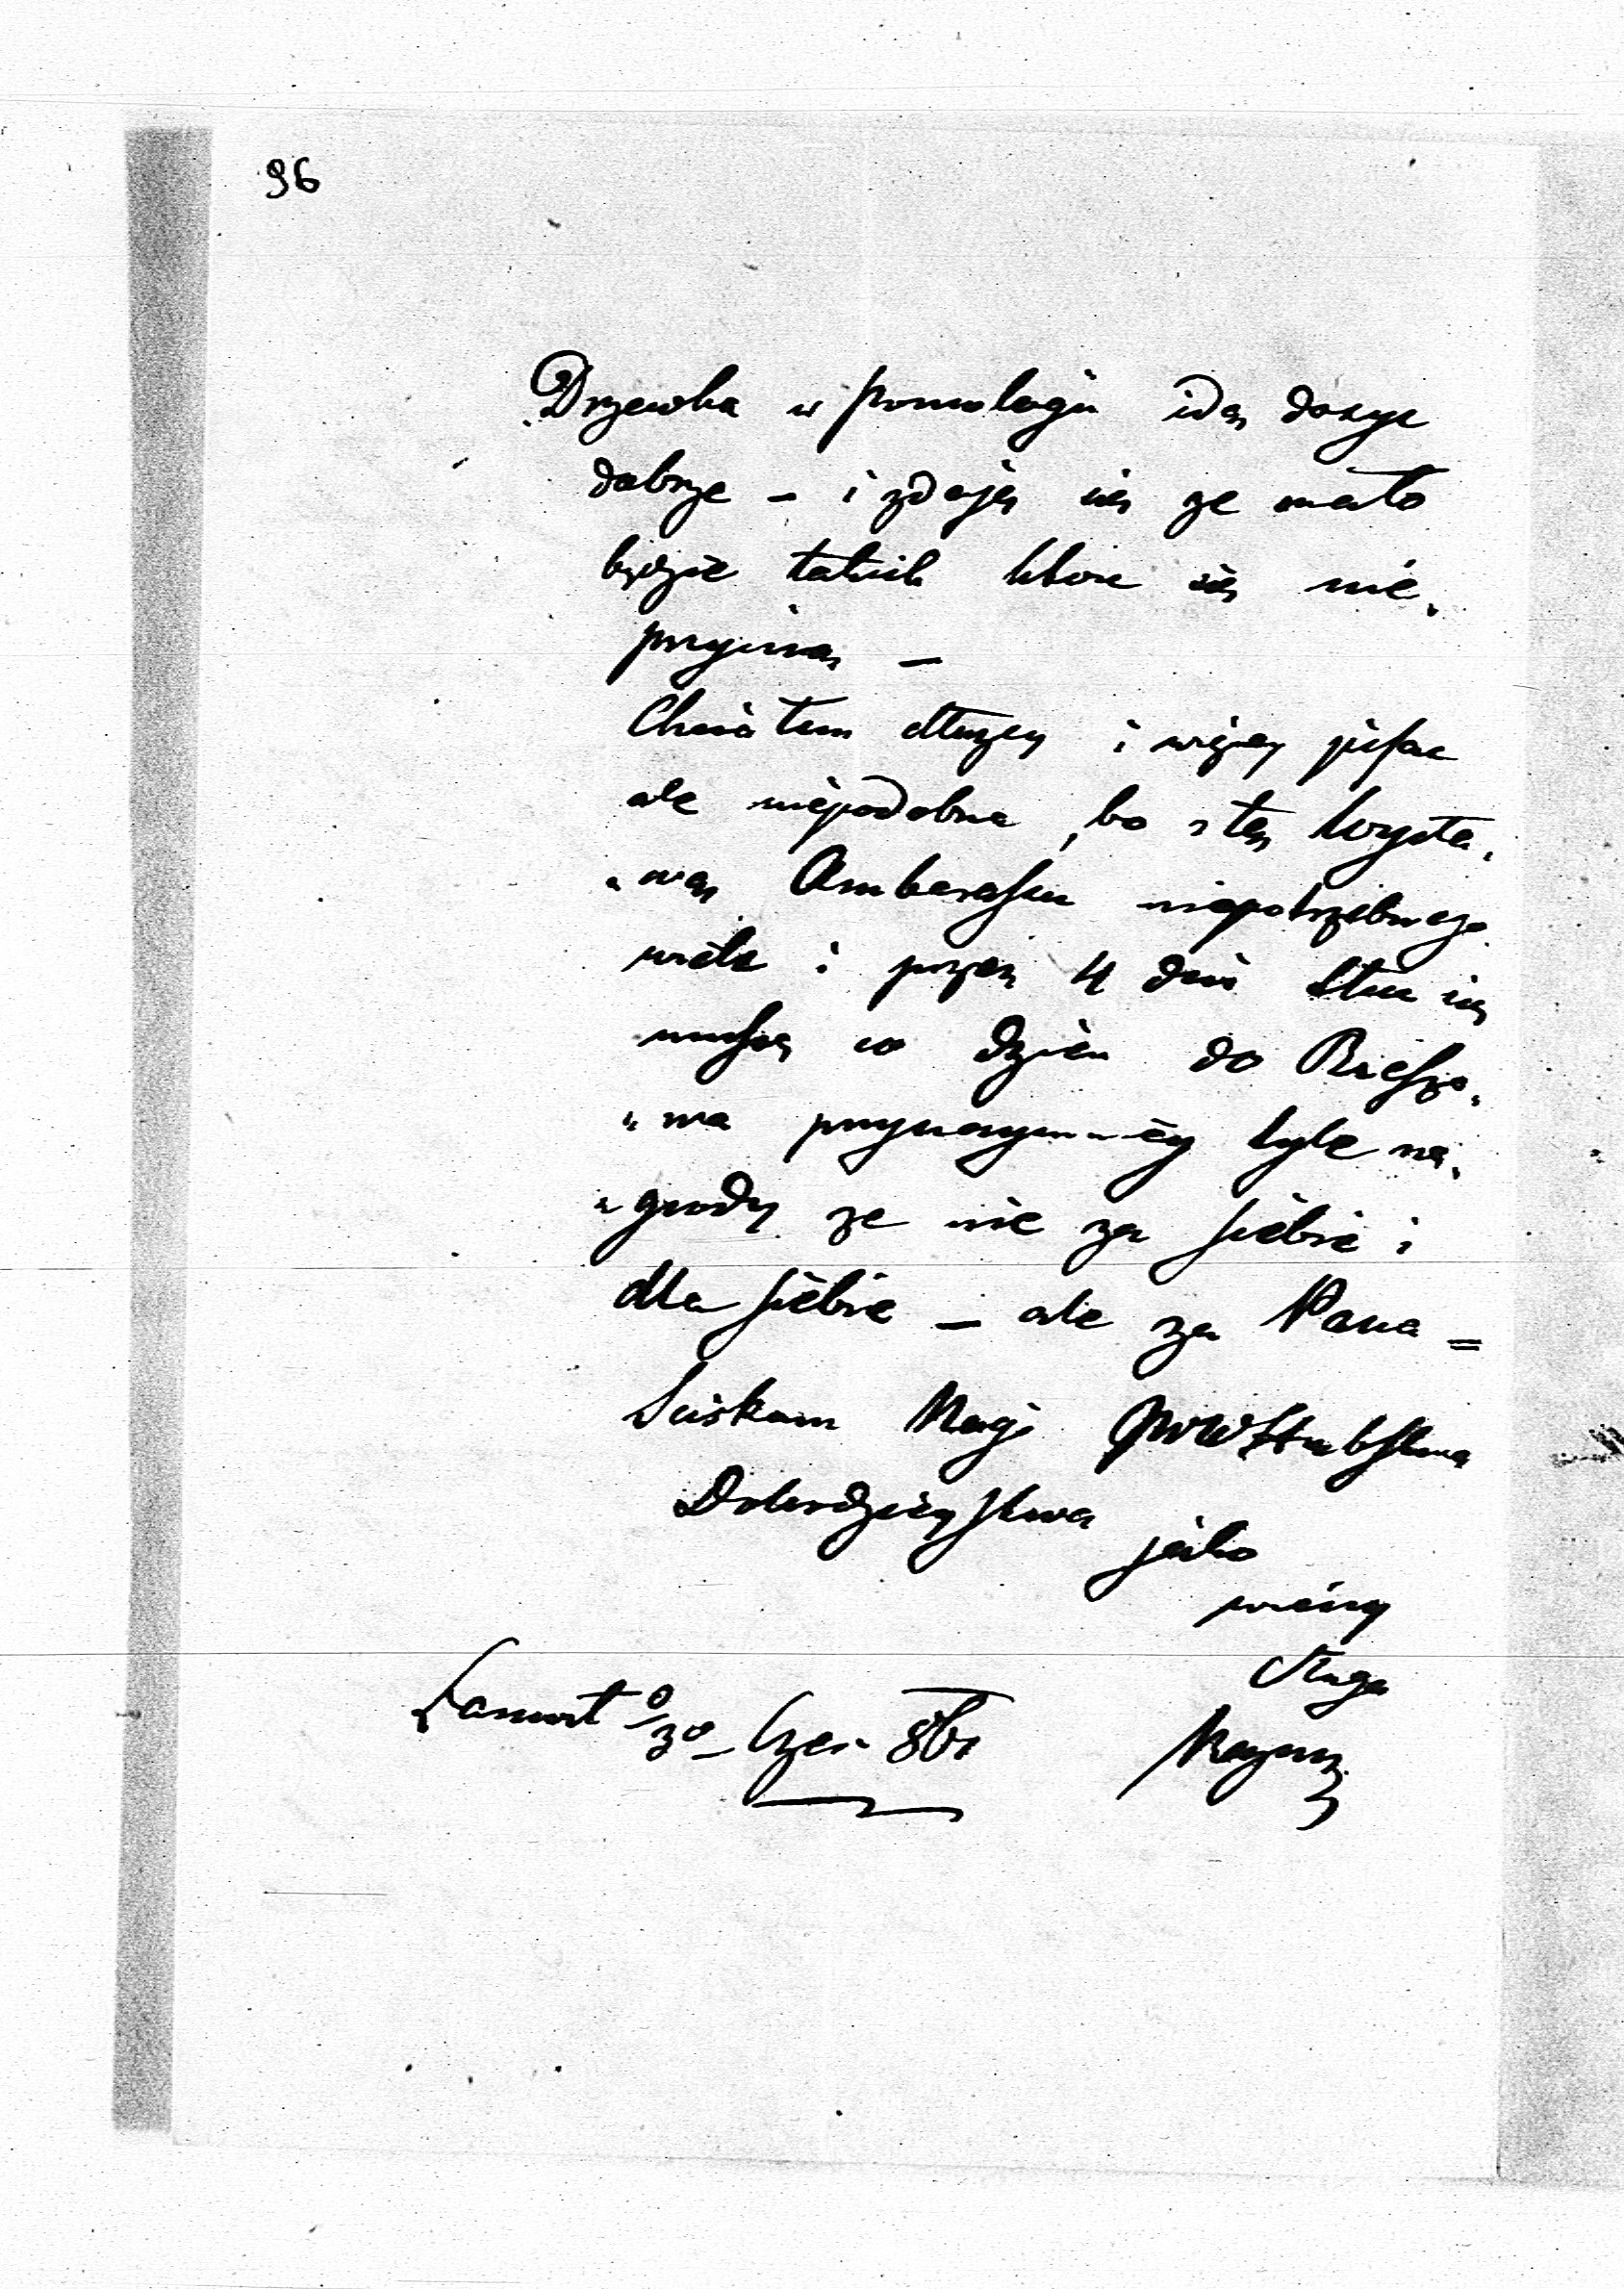 96
Drzewka w pomologii idą dosyc
dobrze – i zdaję się ze mało
będzie takich ktore się nie
przyimą –
Chciałem dłuzey i więcey pisac
ale niepodobna, bo z tą Wysta„
„wą Ambarasu niepotrzebnego
wiele i przez 4 dni
muszę co dzien do Rzeszo„
„wa przynaymniey tyle na„
„grody ze nie za siebie i
dla siebie – ale za Pana =
Sciskam Nogi
Dobrodzieystwa
jako
wierny
Sługa
Łancut d/30 – Czer. 861